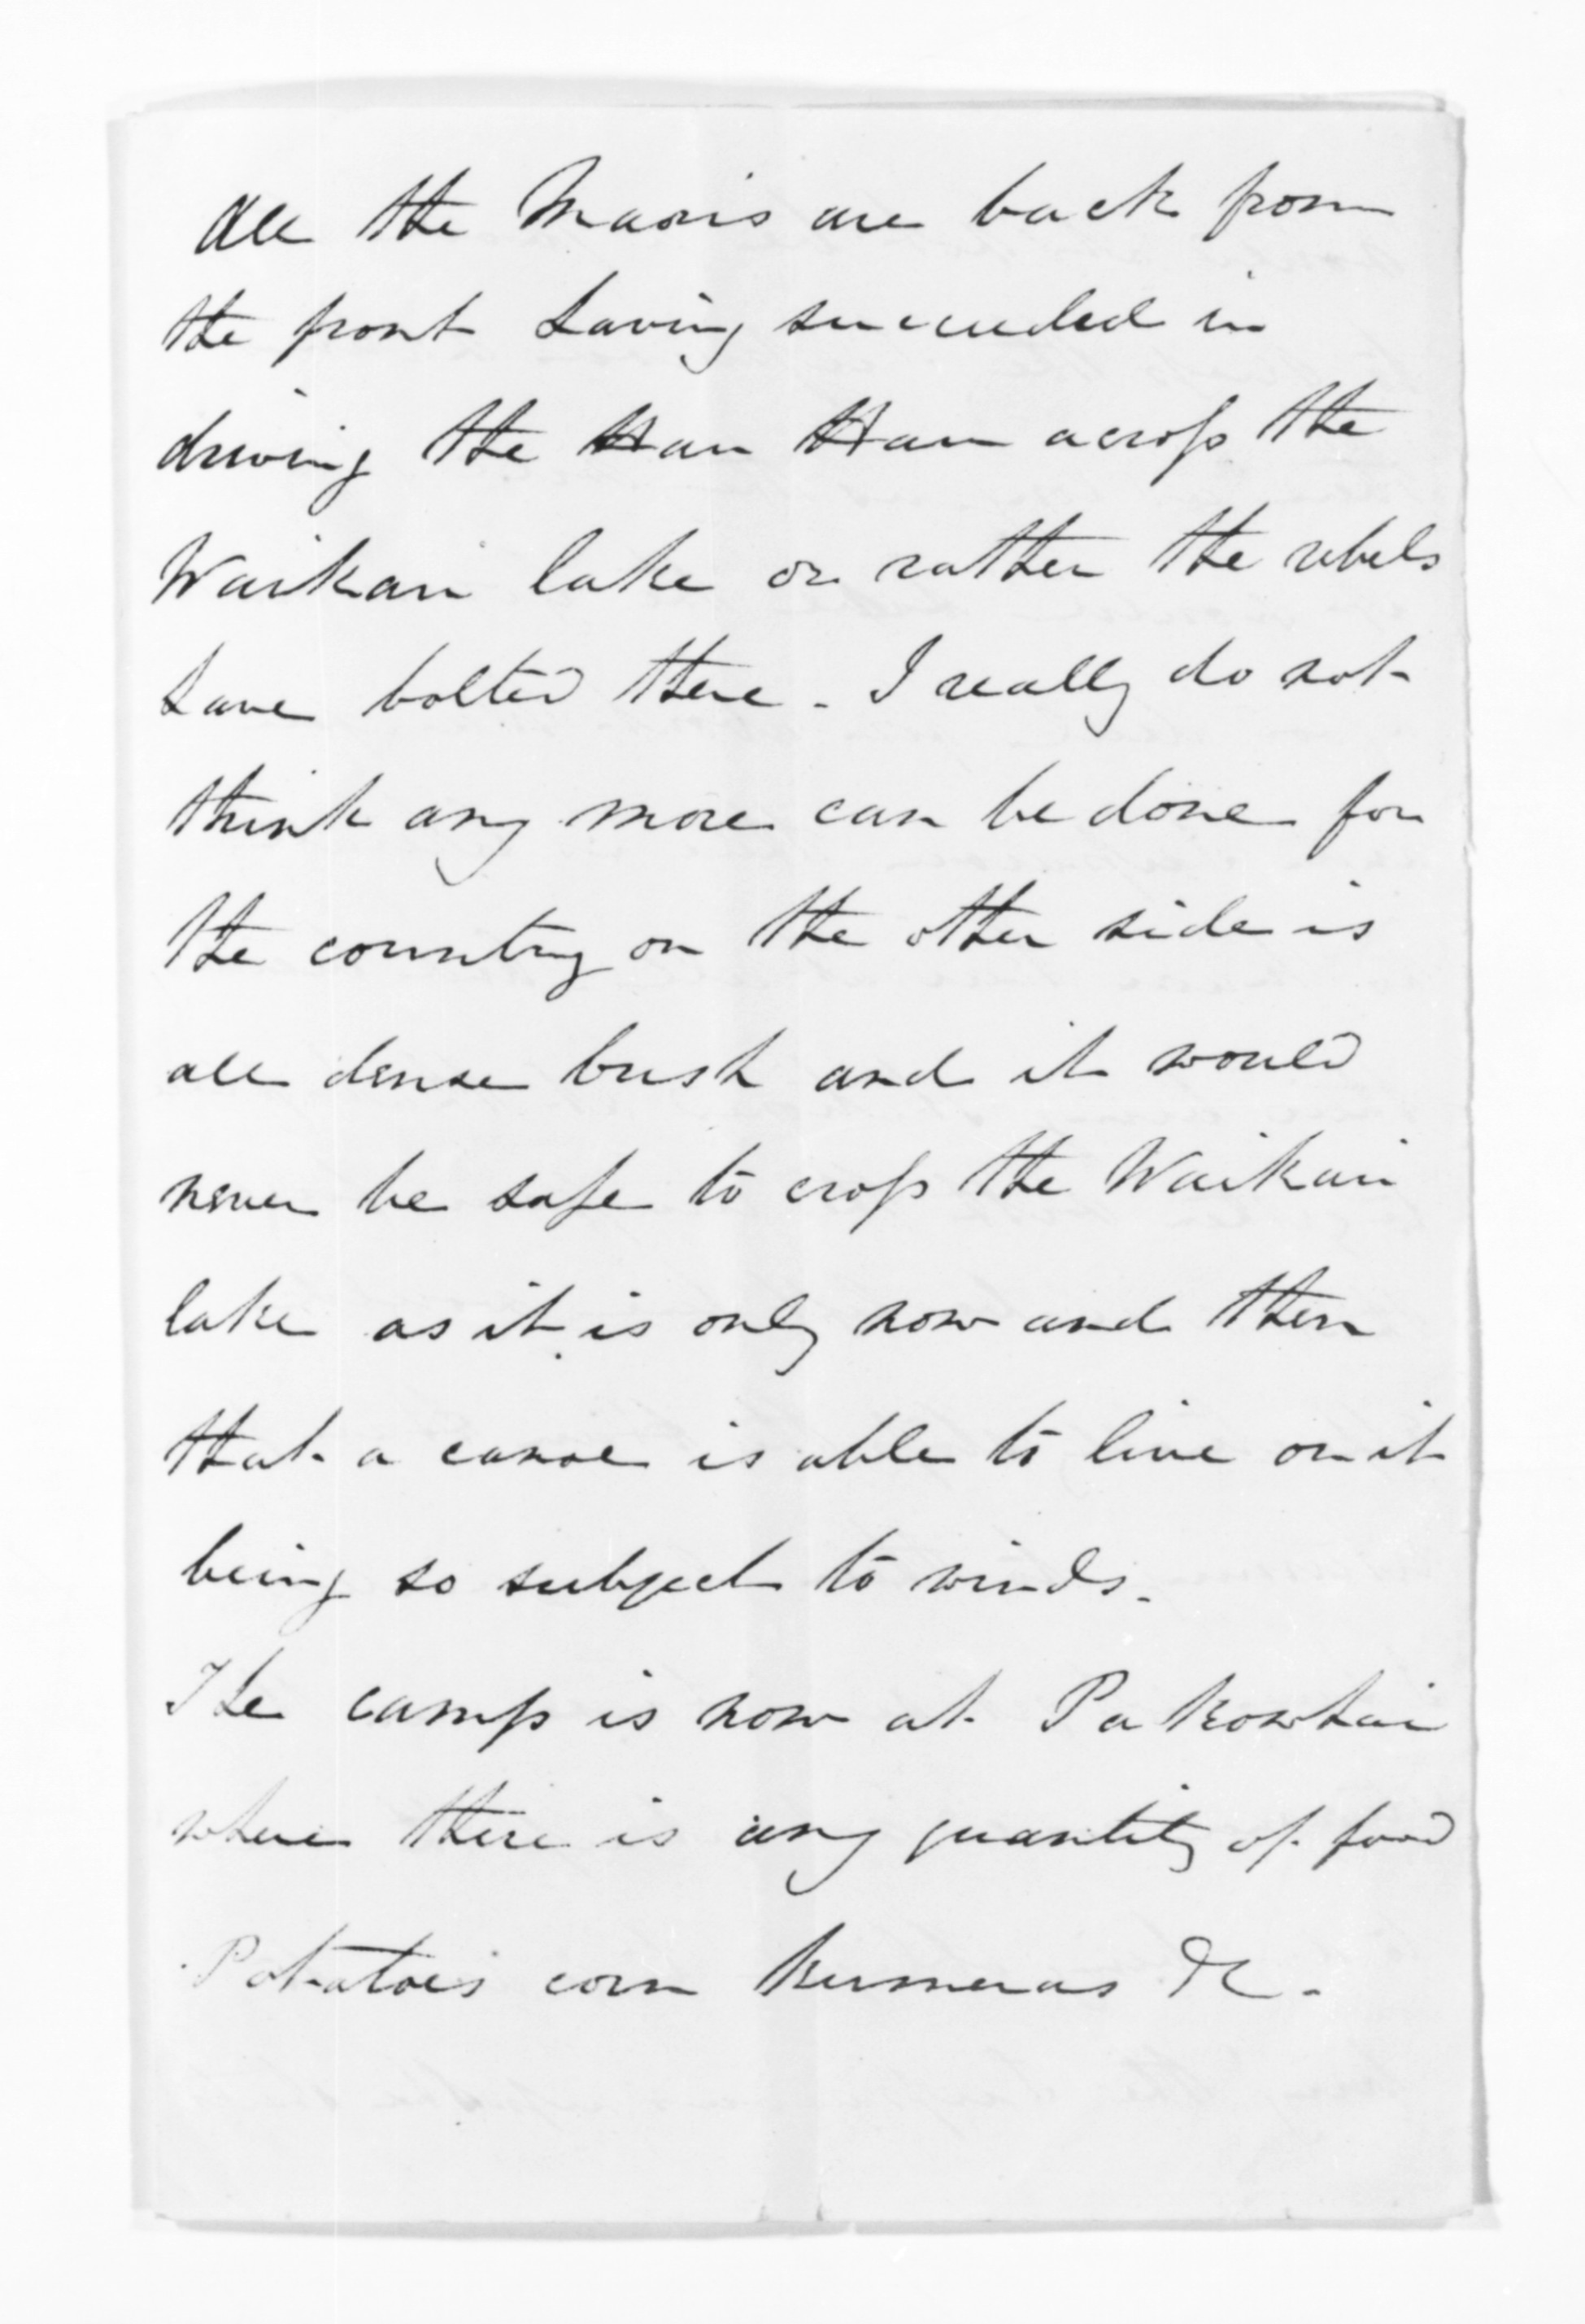 All the Maoris are back from
the front having succeeded in
driving the Hau Hau across the
Waikari lake or rather the rebels
have bolted there. I really do not
think any more can be done for
the country on the other side is
all dense bush and it would
never be safe to cross the Waikari
lake as it is only now and then
that a canoe is able to live on it
being so subject to winds.
The camp is now at Pa Kowhai
where there is any quantity of food
Potatoes corn kumeras &c.